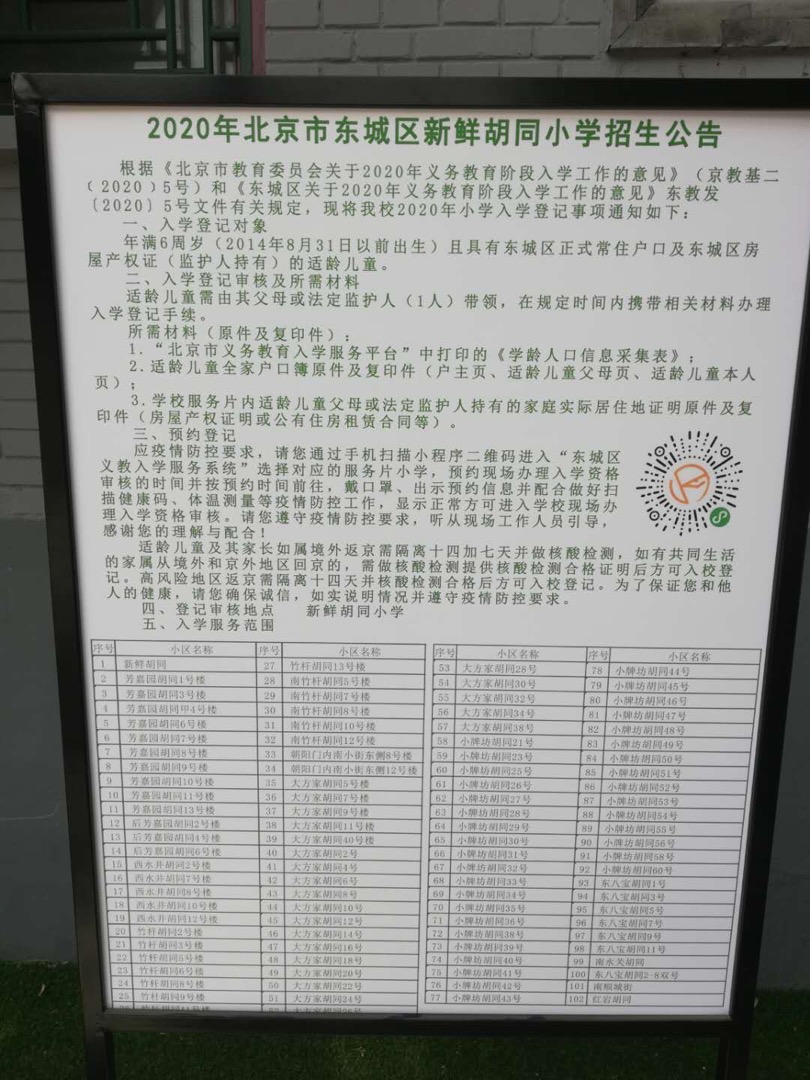 2020年北京市东城区新鲜胡同小学招生公告
根据《北京市教育委员会关于2020年义务教育阶段入学工作的意见》（京教基二
﹝2020﹞5号）和《东城区关于2020年义务教育阶段入学工作的意见》东教发
〔2020〕5号文件有关规定，现将我校2020年小学入学登记事项通知如下：
一、入学登记对象
年满6周岁（2014年8月31日以前出生）且具有东城区正式常住户口及东城区房
屋产权证（监护人持有）的适龄儿童。
二、入学登记审核及所需材料
适龄儿童需由其父母或法定监护人（1人）带领，在规定时间内携带相关材料办理
入学登记手续。
所需材料（原件及复印件）：
1.“北京市义务教育入学服务平台”中打印的《学龄人口信息采集表》；
2.适龄儿童全家户口簿原件及复印件（户主页、适龄儿童父母页、适龄儿童本人
页）；
3.学校服务片内适龄儿童父母或法定监护人持有的家庭实际居住地证明原件及复
印件（房屋产权证明或公有住房租赁合同等）。
三、预约登记
应疫情防控要求，请您通过手机扫描小程序二维码进入“东城区
义教入学服务系统”选择对应的服务片小学，预约现场办理入学资格
审核的时间并按预约时间前往，戴口罩、出示预约信息并配合做好扫
描健康码、体温测量等疫情防控工作，显示正常方可进入学校现场办
理入学资格审核。请您遵守疫情防控要求，听从现场工作人员引导，
感谢您的理解与配合！
适龄儿童及其家长如属境外返京需隔离十四加七天并做核酸检测，如有共同生活
的家属从境外和京外地区回京的，需做核酸检测提供核酸检测合格证明后方可入校登
记。高风险地区返京需隔离十四天并核酸检测合格后方可入校登记。为了保证您和他
人的健康，请您确保诚信，如实说明情况并遵守疫情防控要求。
四、登记审核地点 新鲜胡同小学
五、入学服务范围
序号 小区名称 序号 小区名称 序号 小区名称 序号 小区名称
1 新鲜胡同 27 竹杆胡同13号楼 53 大方家胡同28号 78 小牌坊胡同44号
2 芳嘉园胡同1号楼 28 南竹杆胡同5号楼 54 大方家胡同30号 79 小牌坊胡同45号
3 芳嘉园胡同3号楼 29 南竹杆胡同7号楼 55 大方家胡同32号 80 小牌坊胡同46号
4 芳嘉园胡同甲4号楼 30 南竹杆胡同8号楼 56 大方家胡同34号 81 小牌坊胡同47号
5 芳嘉园胡同6号楼 31 南竹杆胡同10号楼 57 大方家胡同38号 82 小牌坊胡同48号
6 芳嘉园胡同7号楼 32 南竹杆胡同12号楼 58 小牌坊胡同21号 83 小牌坊胡同49号
7 芳嘉园胡同8号楼 33 朝阳门内南小街东侧8号楼 59 小牌坊胡同23号 84 小牌坊胡同50号
8 芳嘉园胡同9号楼 34 朝阳门内南小街东侧12号楼 60 小牌坊胡同25号 85 小牌坊胡同51号
9 芳嘉园胡同10号楼 35 大方家胡同5号楼 61 小牌坊胡同26号 86 小牌坊胡同52号
10 芳嘉园胡同11号楼 36 大方家胡同7号楼 62 小牌坊胡同27号 87 小牌坊胡同53号
11 芳嘉园胡同13号楼 37 大方家胡同9号楼 63 小牌坊胡同28号 88 小牌坊胡同54号
12 后芳嘉园胡同2号楼 38 大方家胡同11号楼 64 小牌坊胡同29号 89 小牌坊胡同55号
13 后芳嘉园胡同4号楼 39 大方家胡同40号楼 65 小牌坊胡同30号 90 小牌坊胡同56号
14 后芳嘉园胡同6号楼 40 大方家胡同2号 66 小牌坊胡同31号 91 小牌坊胡同58号
15 西水井胡同2号楼 41 大方家胡同4号 67 小牌坊胡同32号 92 小牌坊胡同60号
16 西水井胡同7号楼 42 大方家胡同6号 68 小牌坊胡同33号 93 东八宝胡同1号
17 西水井胡同8号楼 43 大方家胡同8号 69 小牌坊胡同34号 94 东八宝胡同3号
18 西水井胡同10号楼 44 大方家胡同10号 70 小牌坊胡同35号 95 东八宝胡同5号
19 西水井胡同12号楼 45 大方家胡同12号 71 小牌坊胡同36号 96 东八宝胡同7号
20 竹杆胡同2号楼 46 大方家胡同14号 72 小牌坊胡同38号 97 东八宝胡同9号
21 竹杆胡同3号楼 47 大方家胡同16号 73 小牌坊胡同39号 98 东八宝胡同11号
22 竹杆胡同5号楼 48 大方家胡同18号 74 小牌坊胡同40号 99 南水关胡同
23 竹杆胡同6号楼 49 大方家胡同20号 75 小牌坊胡同41号 100 东八宝胡同2-8双号
24 竹杆胡同8号楼 50 大方家胡同22号 76 小牌坊胡同42号 101 南顺城街
25 竹杆胡同9号楼 51 大方家胡同24号 77 小牌坊胡同43号 102 红岩胡同